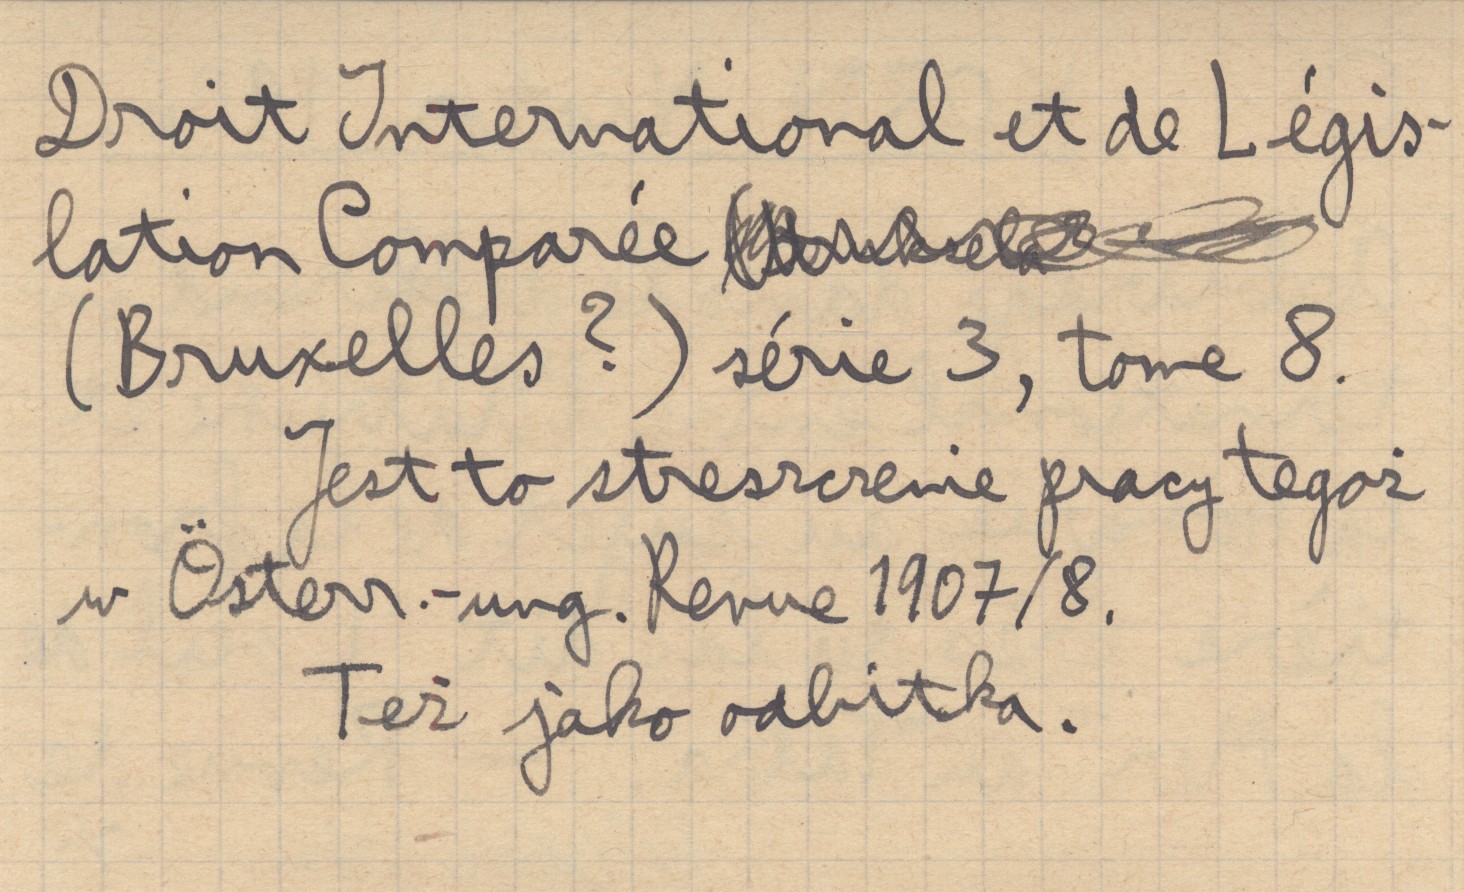 Droit International et de Légis-
lation Comparée
(Bruxelles ?) série 3, tome 8.
Jest to streszczenie pracy tegoż
w Österr.-ung. Revue 1907/8.
Też jako odbitka.